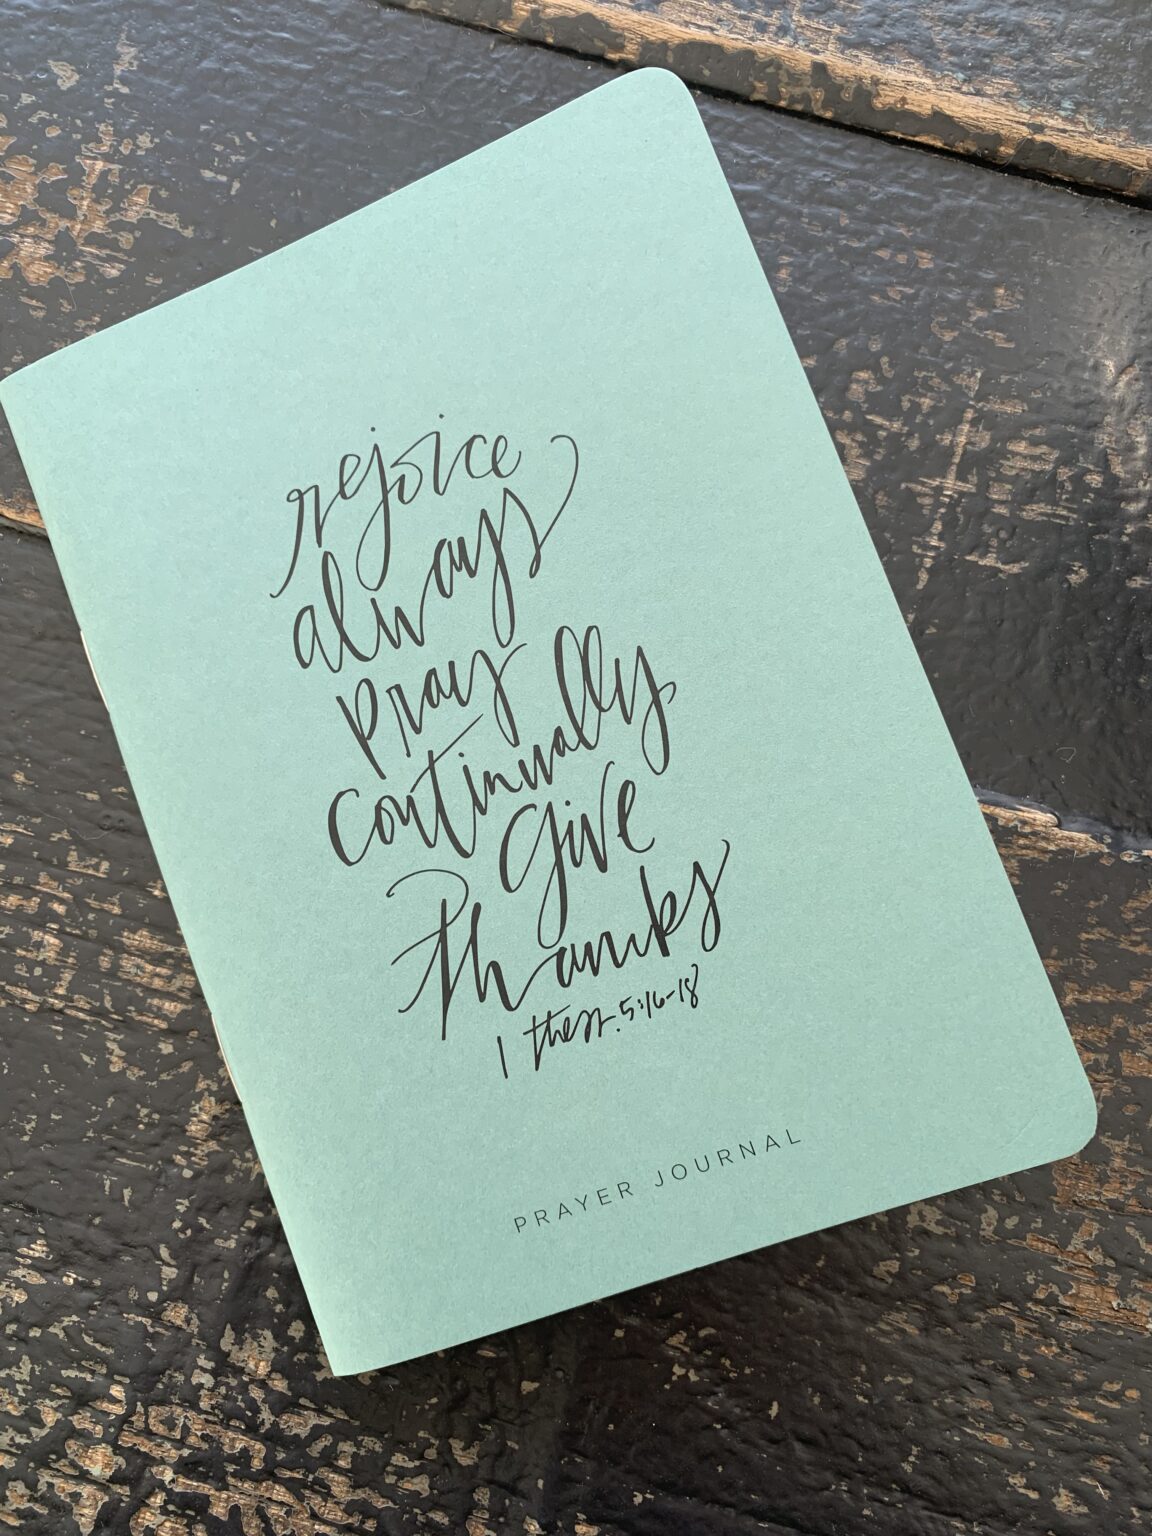 rejoice
always
pray
continually
give
thanks
1 thess. 5:16-18
PRAYER JOURNAL